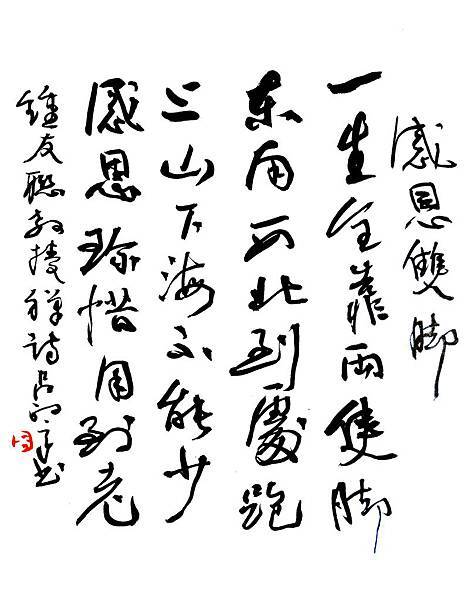 感恩雙脚
一生全靠兩隻脚
东南西北到處跑
上山下海不能少
感恩珍惜用到老
鍾友聯教授禪詩呂书